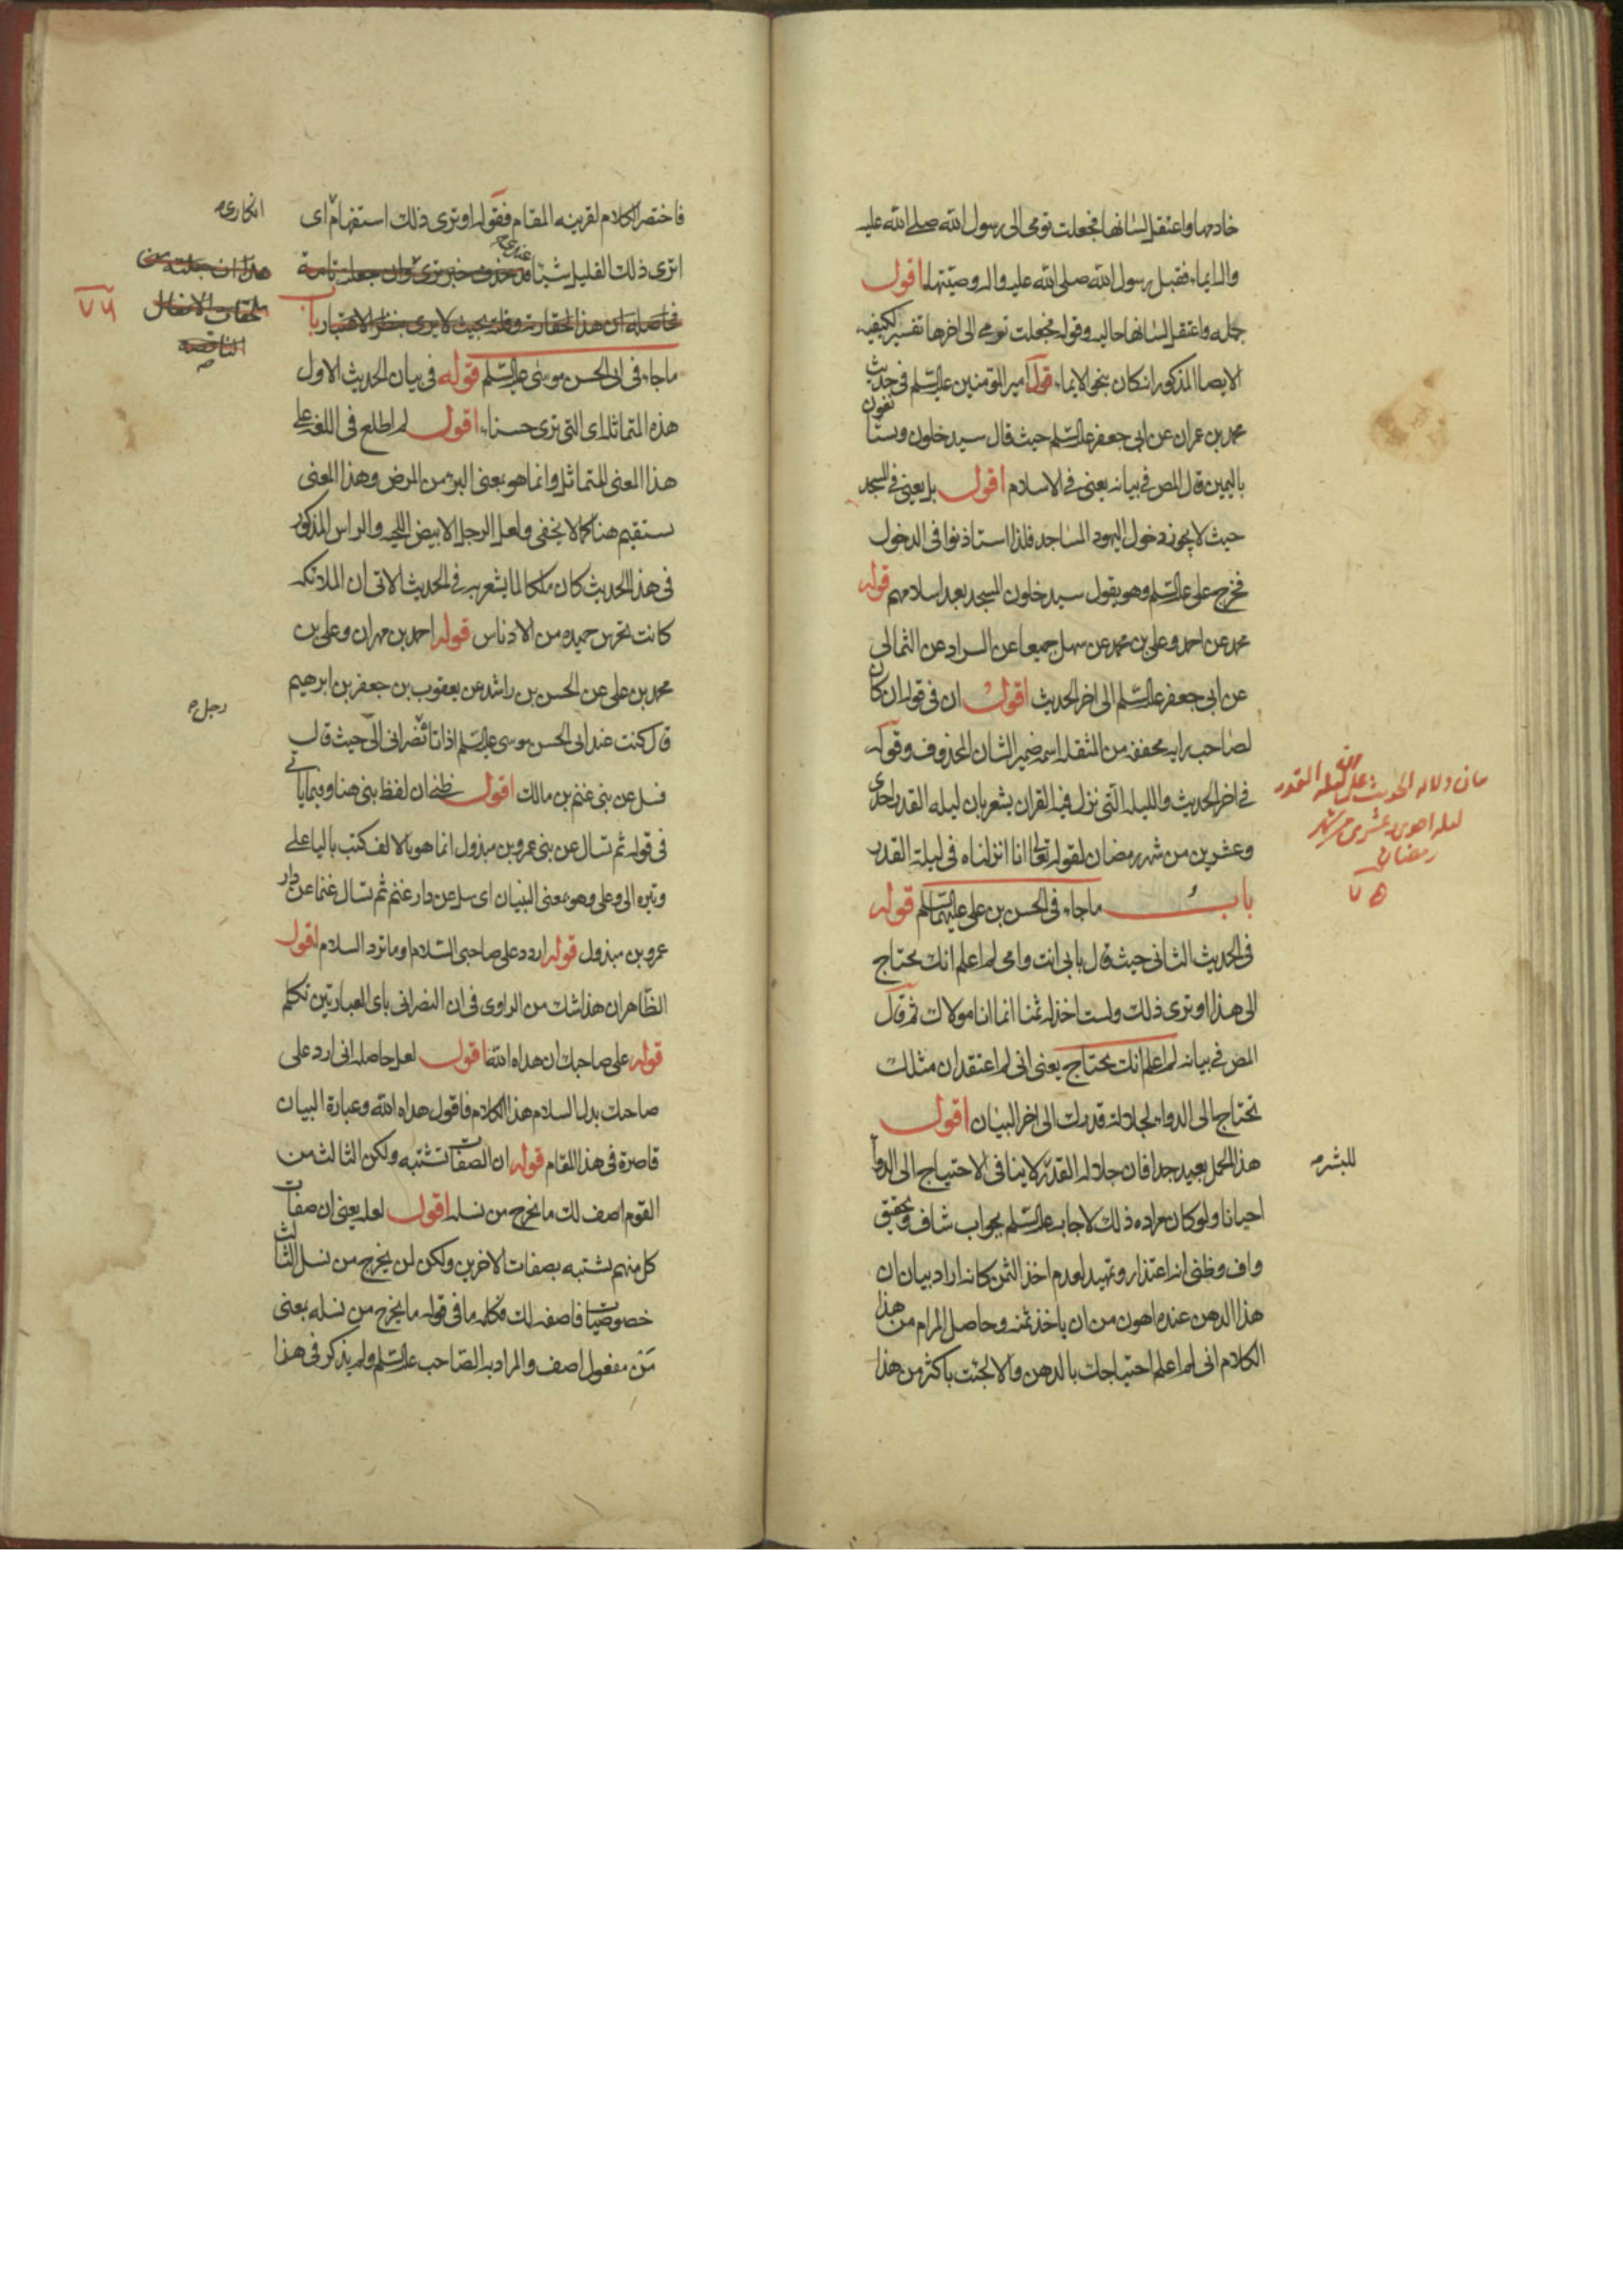 خادمها واعتقل لسانها فجعلت تومى الى رسول الله صلى الله عليه
واله ايماء فقبل رسول الله صلى الله عليه واله وصيتها اقول
جمله واعتقل لسانها حاليه وقوله فجعلت تومى الى اخرها تفسير لكيفيه
الايصا المذكور انه كان بنحو الايماء قوله امير المؤمنين عليه السلم فى حديث
محمد بن عمران عن ابى جعفر عليه السلم حيث قال سيدخلون ويستأنفون
باليمين قال المص فى بيانه يعنى فى الاسلام اقول بل يعنى فى المسجد
حيث لا يجوز دخول اليهود المساجد فلذا استاذنوا فى الدخول
فخرج على عليه السلم وهو يقول سيدخلون المسجد بعد اسلامهم قوله
محمد عن احمد وعلى بن محمد عن سهل جميعا عن السراد عن الثمالى
عن ابى جعفر عليه السلم الى اخر الحديث اقول ان فى قوله ان كان
لصاحب رايه مخففه من المثقله اسمه ضمير الشان المحذوف وقوله
فى اخر الحديث والليله التى نزل فيها القران يشعر بان ليله القدر احدى
وعشرين من شهر رمضان لقوله تعالى انا انزلناه فى ليلة القدر
باب ما جاء فى الحسن بن على عليهما السلم قوله
فى الحديث الثانى حيث قال بابى انت وامى لم اعلم انك تحتاج
الى هذا او ترى ذلك ولست اخذ له ثمنا انما انا مولاك ثم قال
المص فى بيانه لم اعلم انك تحتاج يعنى انى لم اعتقد ان مثلك
تحتاج الى الدواء لجلالة قدرك الى اخر البيان اقول
هذا المحمل بعيد جدا فان جلاله القدر لا ينافى الاحتياج الى الدوا
احيانا ولو كان مراده ذلك لاجاب عليه السلم بجواب شاف وتحقيق
واف وظنى انه اعتذار وتمهيد لعدم اخذ الثمن كانه اراد بيان ان
هذا الدهن عنده اهون من ان ياخذ ثمنه وحاصل المرام من هذا
الكلام انى لم اعلم احتياجك بالدهن والا لجئت باكثر من هذا
ليله احدى وعشرين من شهر
رمضان
٧٥
للبشر
فاختصر الكلام لقرينه المقام فقوله او ترى ذلك استفهام اى
اترى ذلك القليل شيئا
باب
ما جاء فى ابى الحسن موسى عليه السلم قوله فى بيان الحديث الاول
هذه المتماثل اى التى ترى حسناء اقول لم اطلع فى اللغه على
هذا المعنى للمتماثل وانما هو بمعنى البرء من المرض وهذا المعنى
يستقيم هنا كما لا يخفى ولعل الرجل الابيض اللحيه والراس المذكور
فى هذا الحديث كان ملكا لما يشعر به فى الحديث الاتى ان الملائكه
كانت تحرس حميده من الادناس قوله احمد بن مهران وعلى بن
محمد بن على عن الحسن بن راشد عن يعقوب بن جعفر بن ابرهيم
قال كنت عند ابى الحسن موسى عليه السلم اذ اتاه نصرانى الى حيث قال
فسل عن بنى غنم بن مالك اقول ظنى ان لفظ بنى هنا وفيما ياتى
فى قوله ثم تسال عن بنى عمرو بن مبذول انما هو بالالف كتب باليا على
وتيره الى وعلى وهو معنى البنيان اى سل عن دار غنم ثم تسال غنما عن دار
عمرو بن مبذول قوله اردد على صاحبى السلام او ما ترد السلام اقول
الظاهر ان هذا شك من الراوى فى ان النصرانى باى العبارتين تكلم
قوله على صاحبك ان هداه الله اقول لعل حاصله انى ارد على
صاحبك بدل السلام هذا الكلام فاقول هداه الله وعبارة البيان
قاصرة فى هذا المقام قوله ان الصفات تشتبه ولكن الثالث من
القوم اصف لك ما يخرج من نسله اقول لعله يعنى ان صفات
كل منهم تشتبه بصفات الاخرين ولكن لمن يخرج من نسل الثالث
خصوصيات فاصفه لك وكلمه ما فى قوله ما يخرج من نسله بمعنى
من مفعول اصف والمراد به الصاحب عليه السلم ولم يذكر فى هذا
انكارى
هذا ان جعلته من
ملحقات الافعال
الناقصة
٧٦
رجل